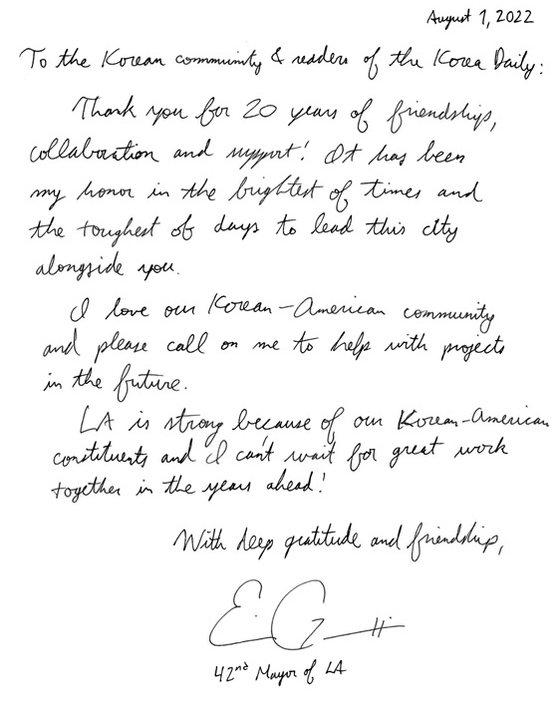 August 1, 2022
To the Korean community & readers of the Korea Daily:
Thank you for 20 years of friendships,
collaboration and support! It has been
my honor in the brightest of times and
the toughest of days to lead this city
alongside you.
I love our Korean-American community
and please call on me to help with projects
in the future.
LA is strong because of our Korean-American
constituents and I can't wait for great work
together in the years ahead!
With deep gratitude and friendship,
E. G
42nd Mayor of LA